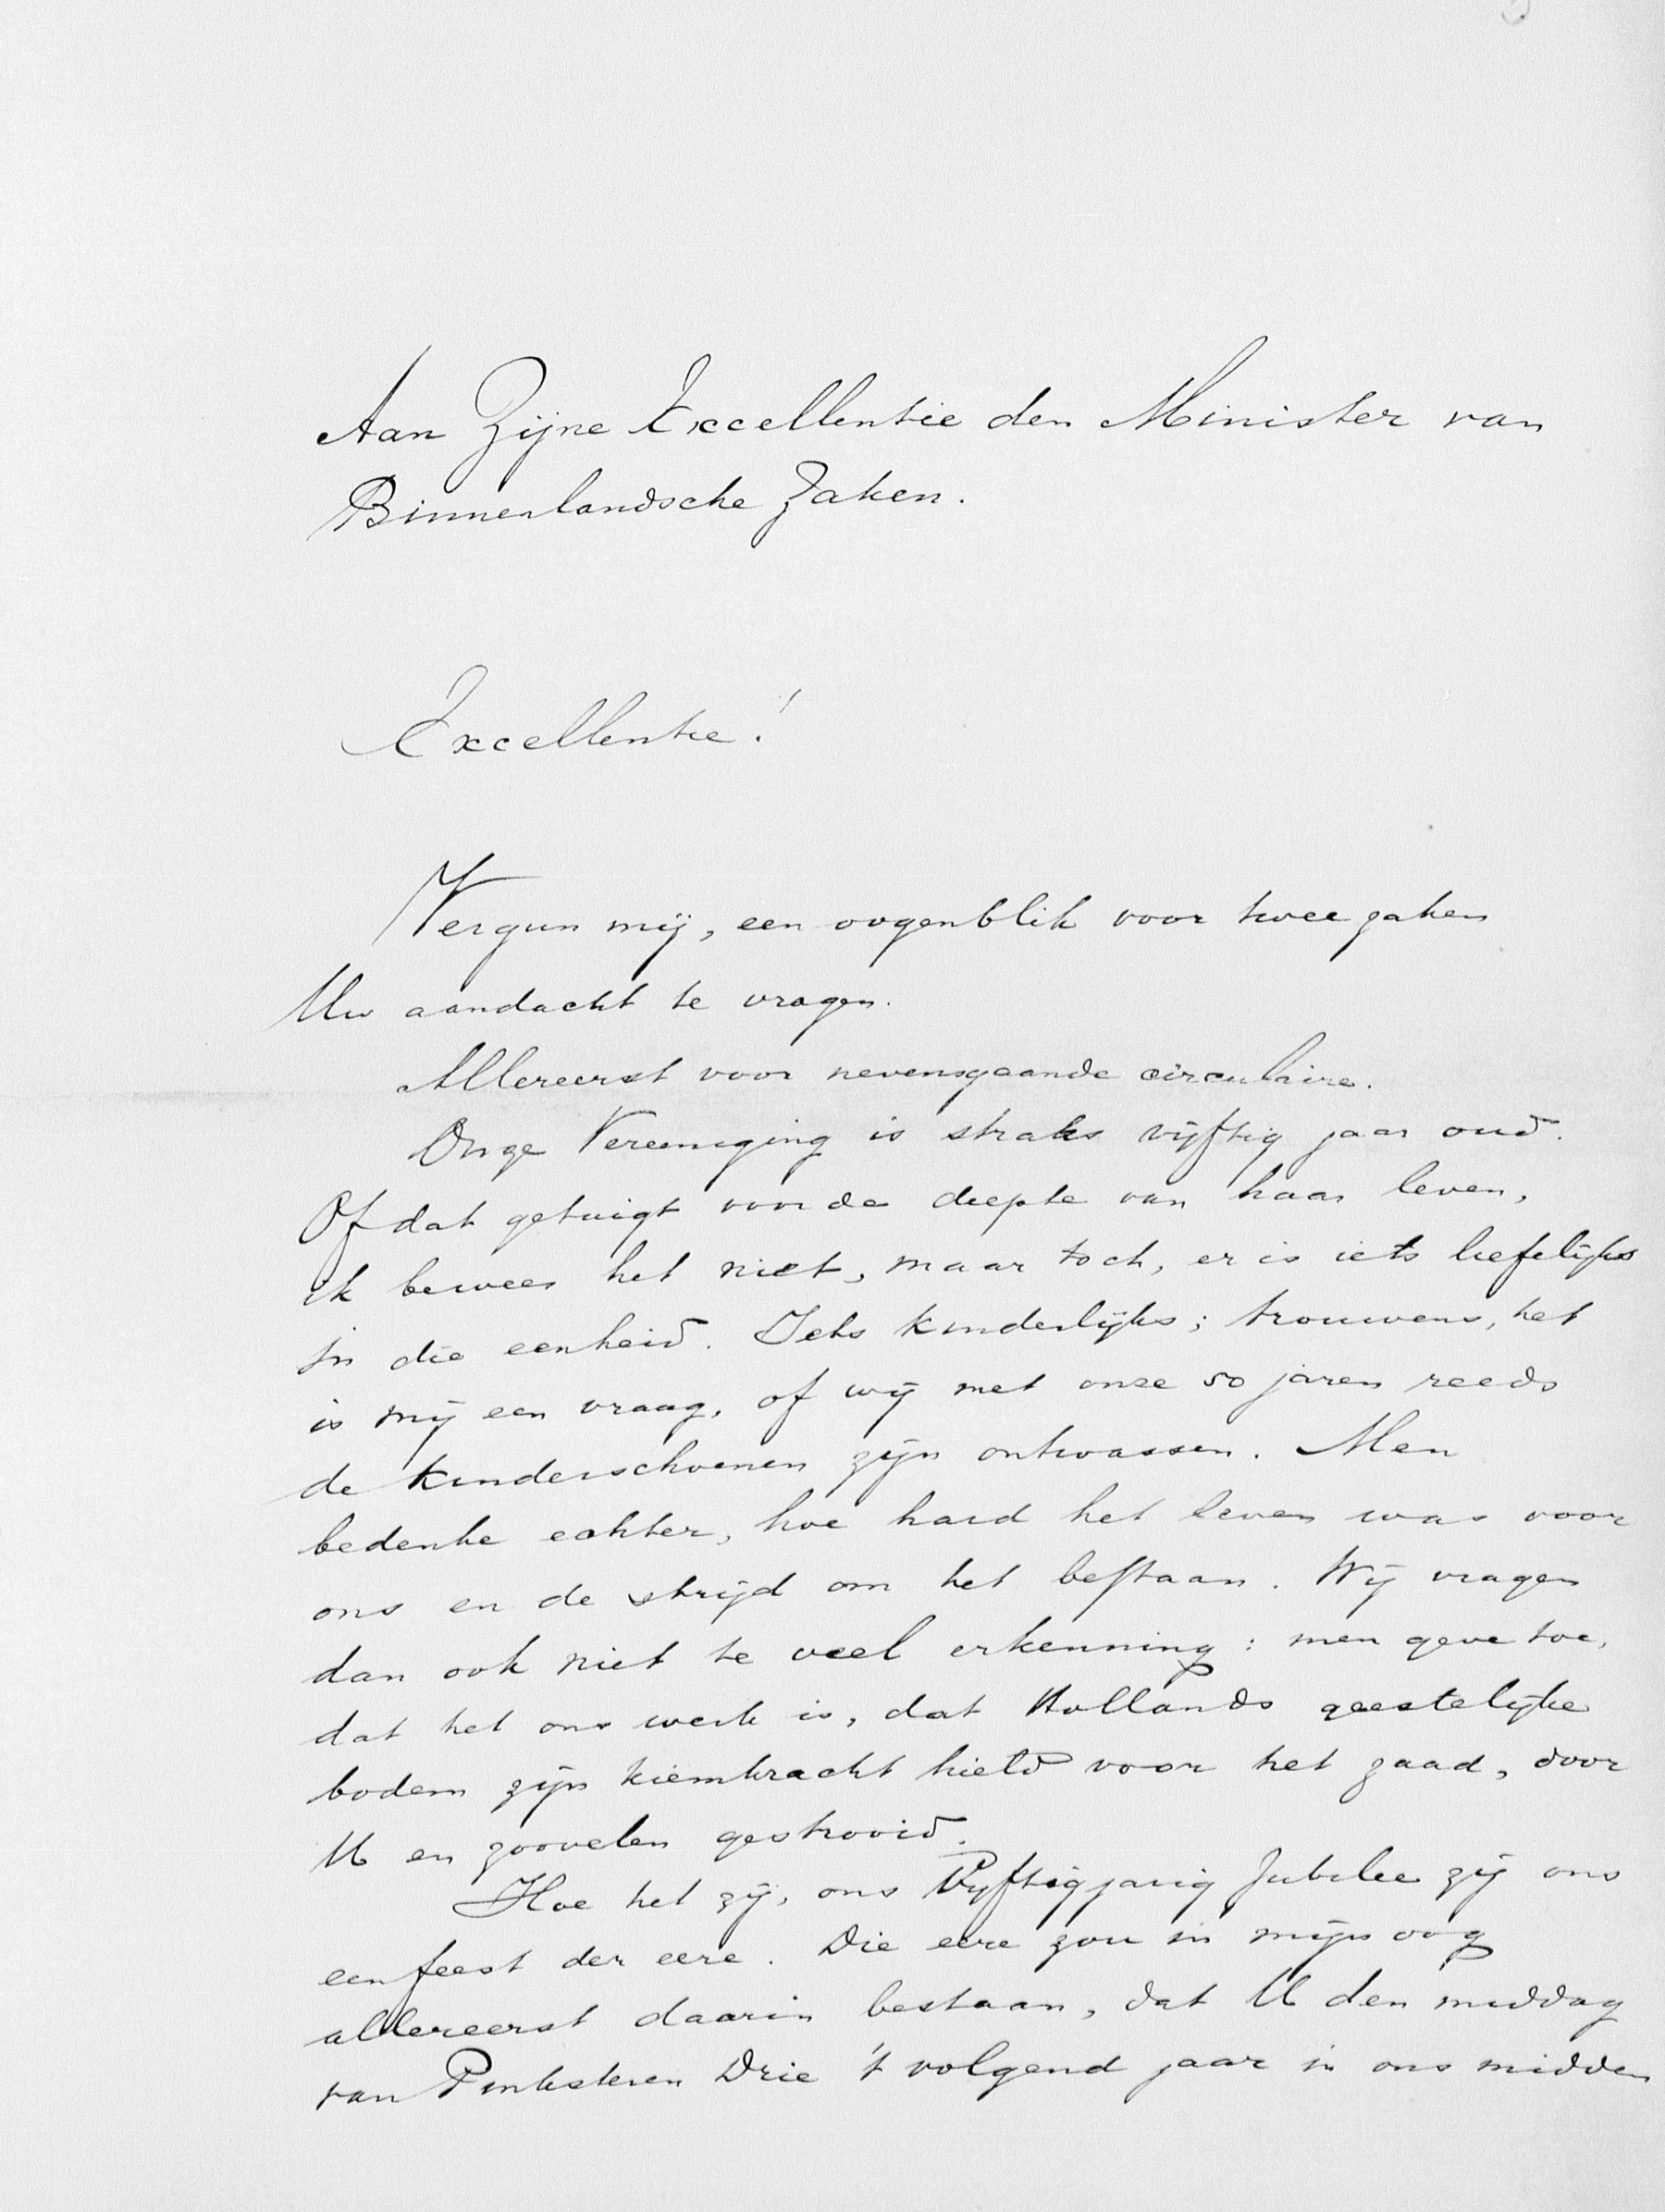 Aan Zijne Excellentie den Minister van
Binnenlandsche Zaken.
Excellentie!
Vergun mij, een oogenblik voor twee zaken
Uw aandacht te vragen.
Allereerst voor nevensgaande circulaire.
Onze Vereeniging is straks vijftig jaar oud.
Of dat getuigt voor de diepte van haar leven,
ik beweer het niet, maar toch, er is iets liefelijks
in die eenheid. Iets kinderlijks; trouwens, het
is mij een vraag, of wij met onze 50 jaren reeds
de kinderschoenen zijn ontwassen. Men
bedenke echter, hoe hard het leven was voor
ons en de strijd om het bestaan. Wij vragen
dan ook niet te veel erkenning: men geve toe,
dat het ons werk is, dat Hollands geestelijke
bodem zijn kiemkracht hield voor het zaad, door
U en zoovelen gestrooid.
Hoe het zij, ons Vijftigjarig Jubilee zij ons
een feest der eere. Die eere zou in mijn oog
allereerst daarin bestaan, dat U den middag
van Pinksteren Drie 't volgend jaar in ons midden